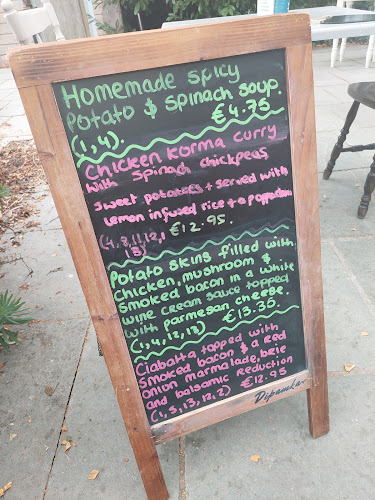 Homemade spicy
Potato & Spinach Soup.
€4.75
(1,4).
Chicken Korma curry
with Spinach chickpeas
sweet potatoes + served with
lemon infused rice + a poppadom
€12.95.
Potato skins filled with
chicken, mushroom &
smoked bacon in a white
wine cream sauce topped
with parmesan cheese
(1,4,12,13) €13.35.
Ciabatta topped with
smoked bacon & a red
onion marmalade, brie
and balsamic reduction
(1,3,13,12,2) €12.95